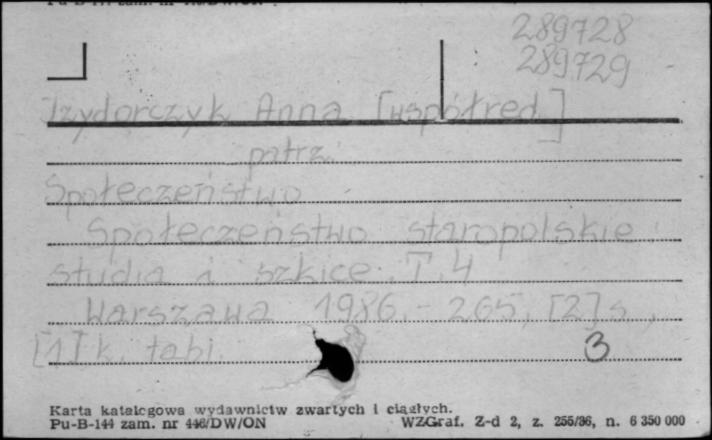 289728
289729
Izydorczyk Anna [współred.]
patrz
Społeczeństwo
Społeczeństwo staropolskie :
studia i szkice. T. 4
Warszawa 1986. - 265, [2] s.,
[1] k. tabl.
3
Karta katalogowa wydawnictw zwartych i ciągłych.
Pu-B-144 zam. nr 446/DW/ON WZGraf. Z-d 2, z. 255/86, n. 6 350 000